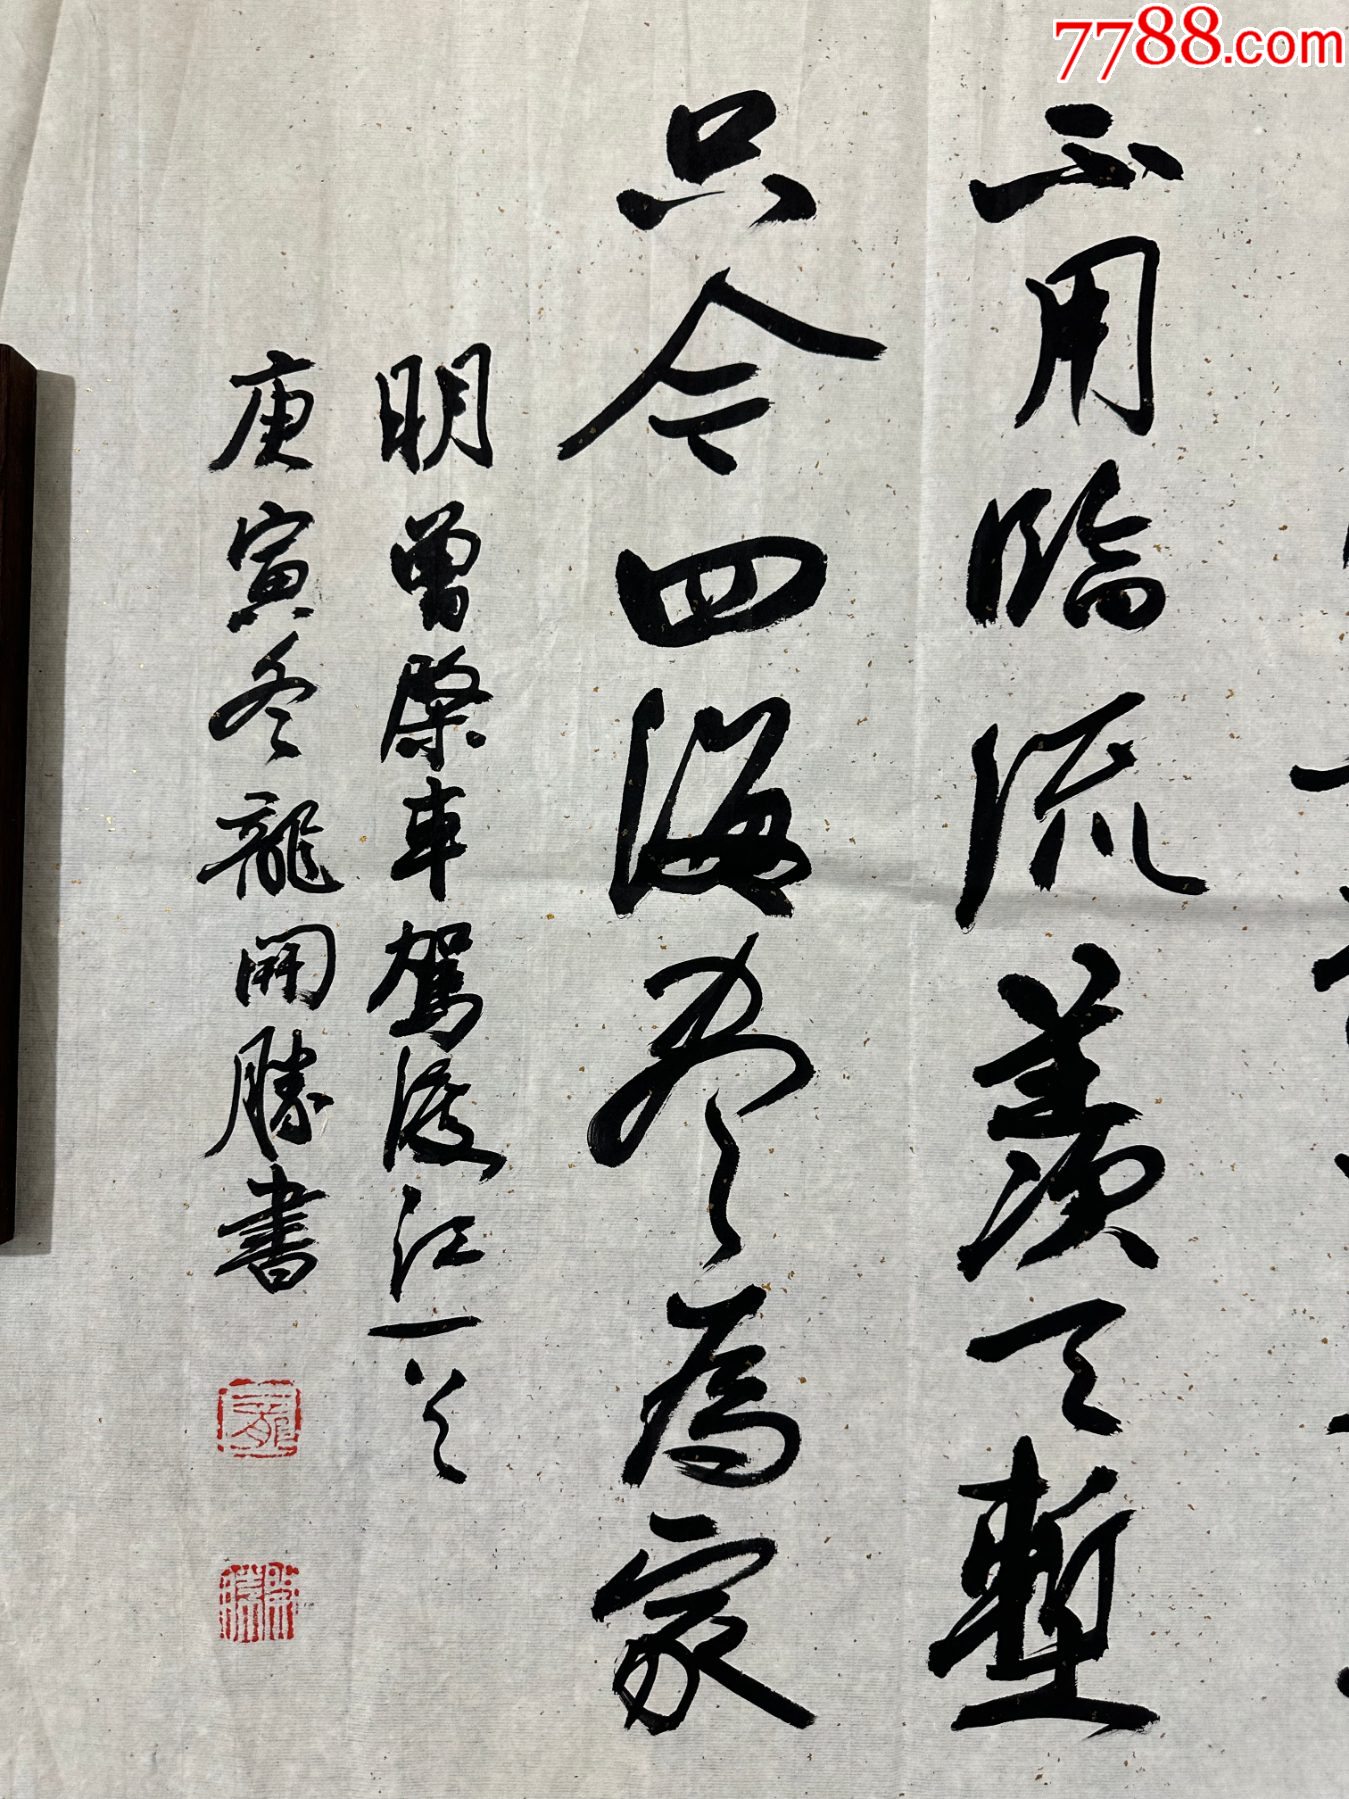 7788.com
不用臨流羨天塹
只今四海尽為家
明曾棨車駕渡江一首
庚寅冬龍開勝書